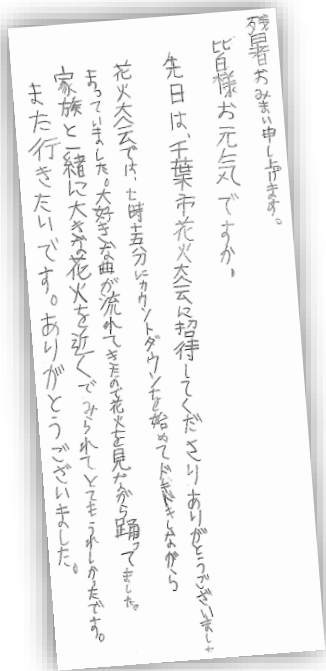 残暑おみまい申し上げます。
皆様お元気ですか。
先日は、千葉市花火大会に招待してくださりありがとうございました
花火大会では、七時十五分にカウントダウンを始めてドキドキしながら
まっていました。大好きな曲が流れてきたので花火を見ながら踊ってました。
家族と一緒に大きな花火を近くでみられてとてもうれしかったです。
また行きたいです。ありがとうございました。